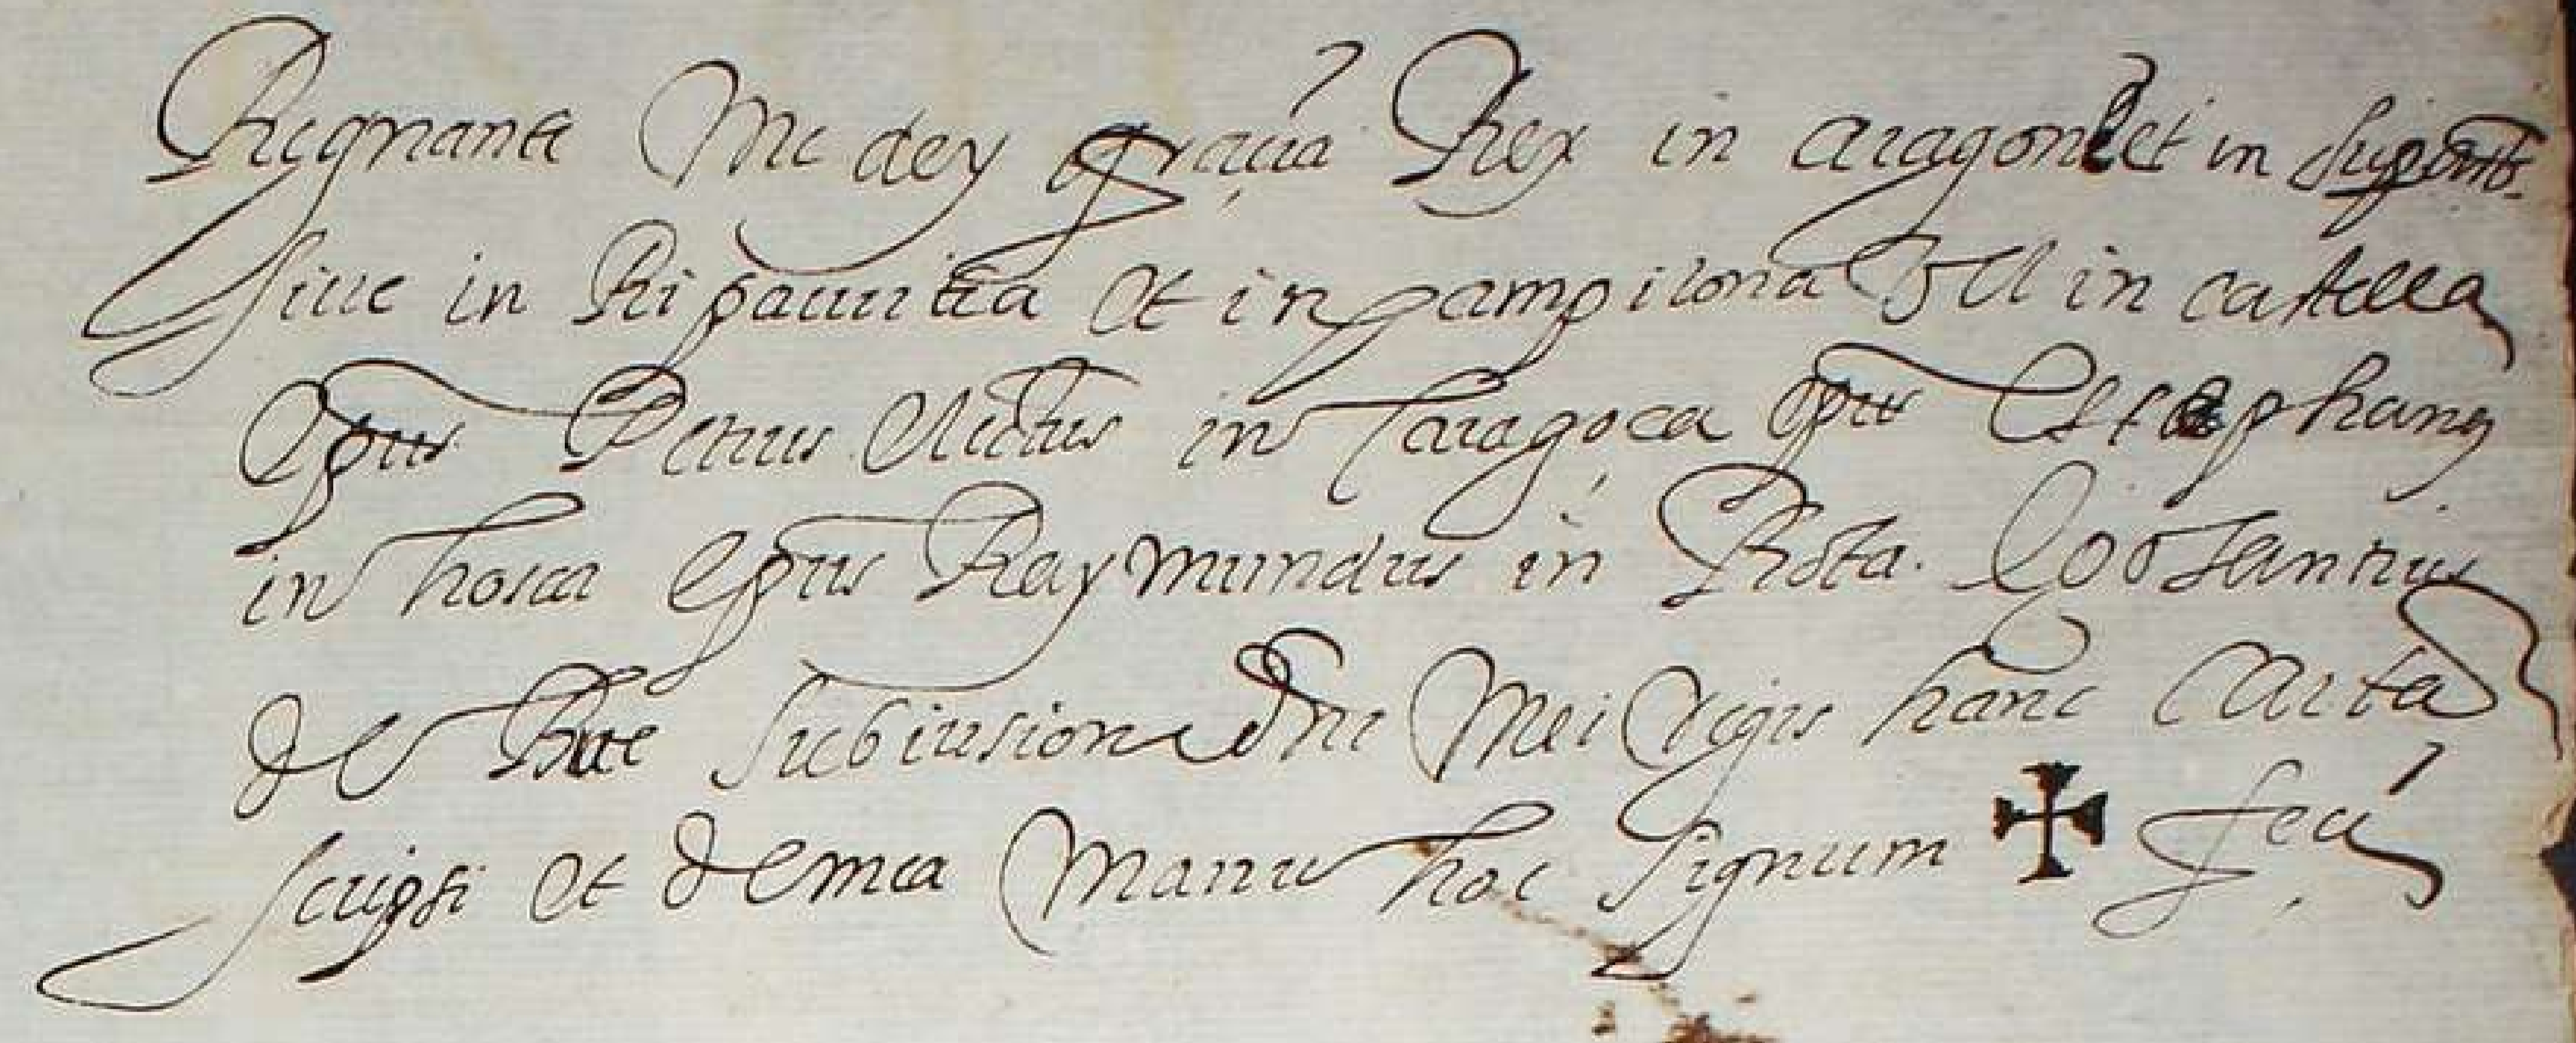 Regnante Me dey gracia Rex in aragon et in suprarb.
siue in Ripacurtia et in pampilona Vel in castella
Epus Petrus Electus in Caragoça Epus Estephanus
in hosca Epus Raymundus in Rota. Costantius
de Rre sub iusione dni Mei Regis hanc Carta
scripsi et de mea Manu hoc signum ✠ feci